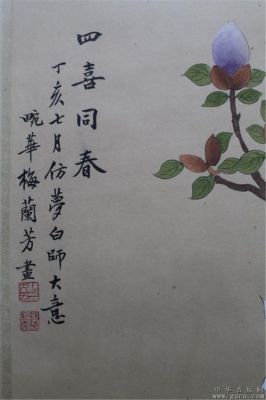 四喜同春
丁亥七月仿夢白師大意
畹華梅蘭芳畫
中华古玩网
www.gucn.com